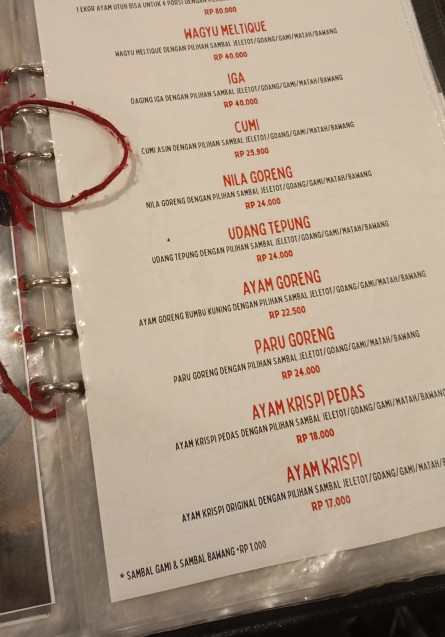 1 EKOR AYAM UTUH BISA UNTUK 4 PORSI DENGAN
RP 80.000
WAGYU MELTIQUE
WAGYU MELTIQUE DENGAN PILIHAN SAMBAL JELETOT/GOANG/GAMI/MATAH/BAWANG
RP 40.000
IGA
DAGING IGA DENGAN PILIHAN SAMBAL JELETOT/GOANG/GAMI/MATAH/BAWANG
RP 40.000
CUMI
CUMI ASIN DENGAN PILIHAN SAMBAL JELETOT/GOANG/GAMI/MATAH/BAWANG
RP 25.900
NILA GORENG
NILA GORENG DENGAN PILIHAN SAMBAL JELETOT/GOANG/GAMI/MATAH/BAWANG
RP 24.000
UDANG TEPUNG
UDANG TEPUNG DENGAN PILIHAN SAMBAL JELETOT/GOANG/GAMI/MATAH/BAWANG
RP 24.000
AYAM GORENG
AYAM GORENG BUMBU KUNING DENGAN PILIHAN SAMBAL JELETOT/GOANG/GAMI/MATAH/BAWANG
RP 22.500
PARU GORENG
PARU GORENG DENGAN PILIHAN SAMBAL JELETOT/GOANG/GAMI/MATAH/BAWANG
RP 24.000
AYAM KRISPI PEDAS
AYAM KRISPI PEDAS DENGAN PILIHAN SAMBAL JELETOT/GOANG/GAMI/MATAH/BAWANG
RP 18.000
AYAM KRISPI
AYAM KRISPI ORIGINAL DENGAN PILIHAN SAMBAL JELETOT/GOANG/GAMI/MATAH/B
RP 17.000
* SAMBAL GAMI & SAMBAL BAWANG +RP 1.000